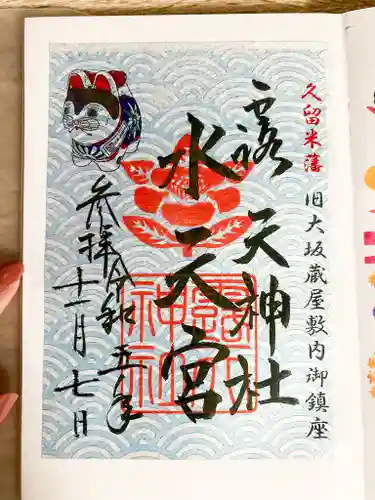 久留米藩 旧大坂蔵屋敷内御鎮座
露天神社
水天宮
令和五年
参拝 十一月七日
露天
神社